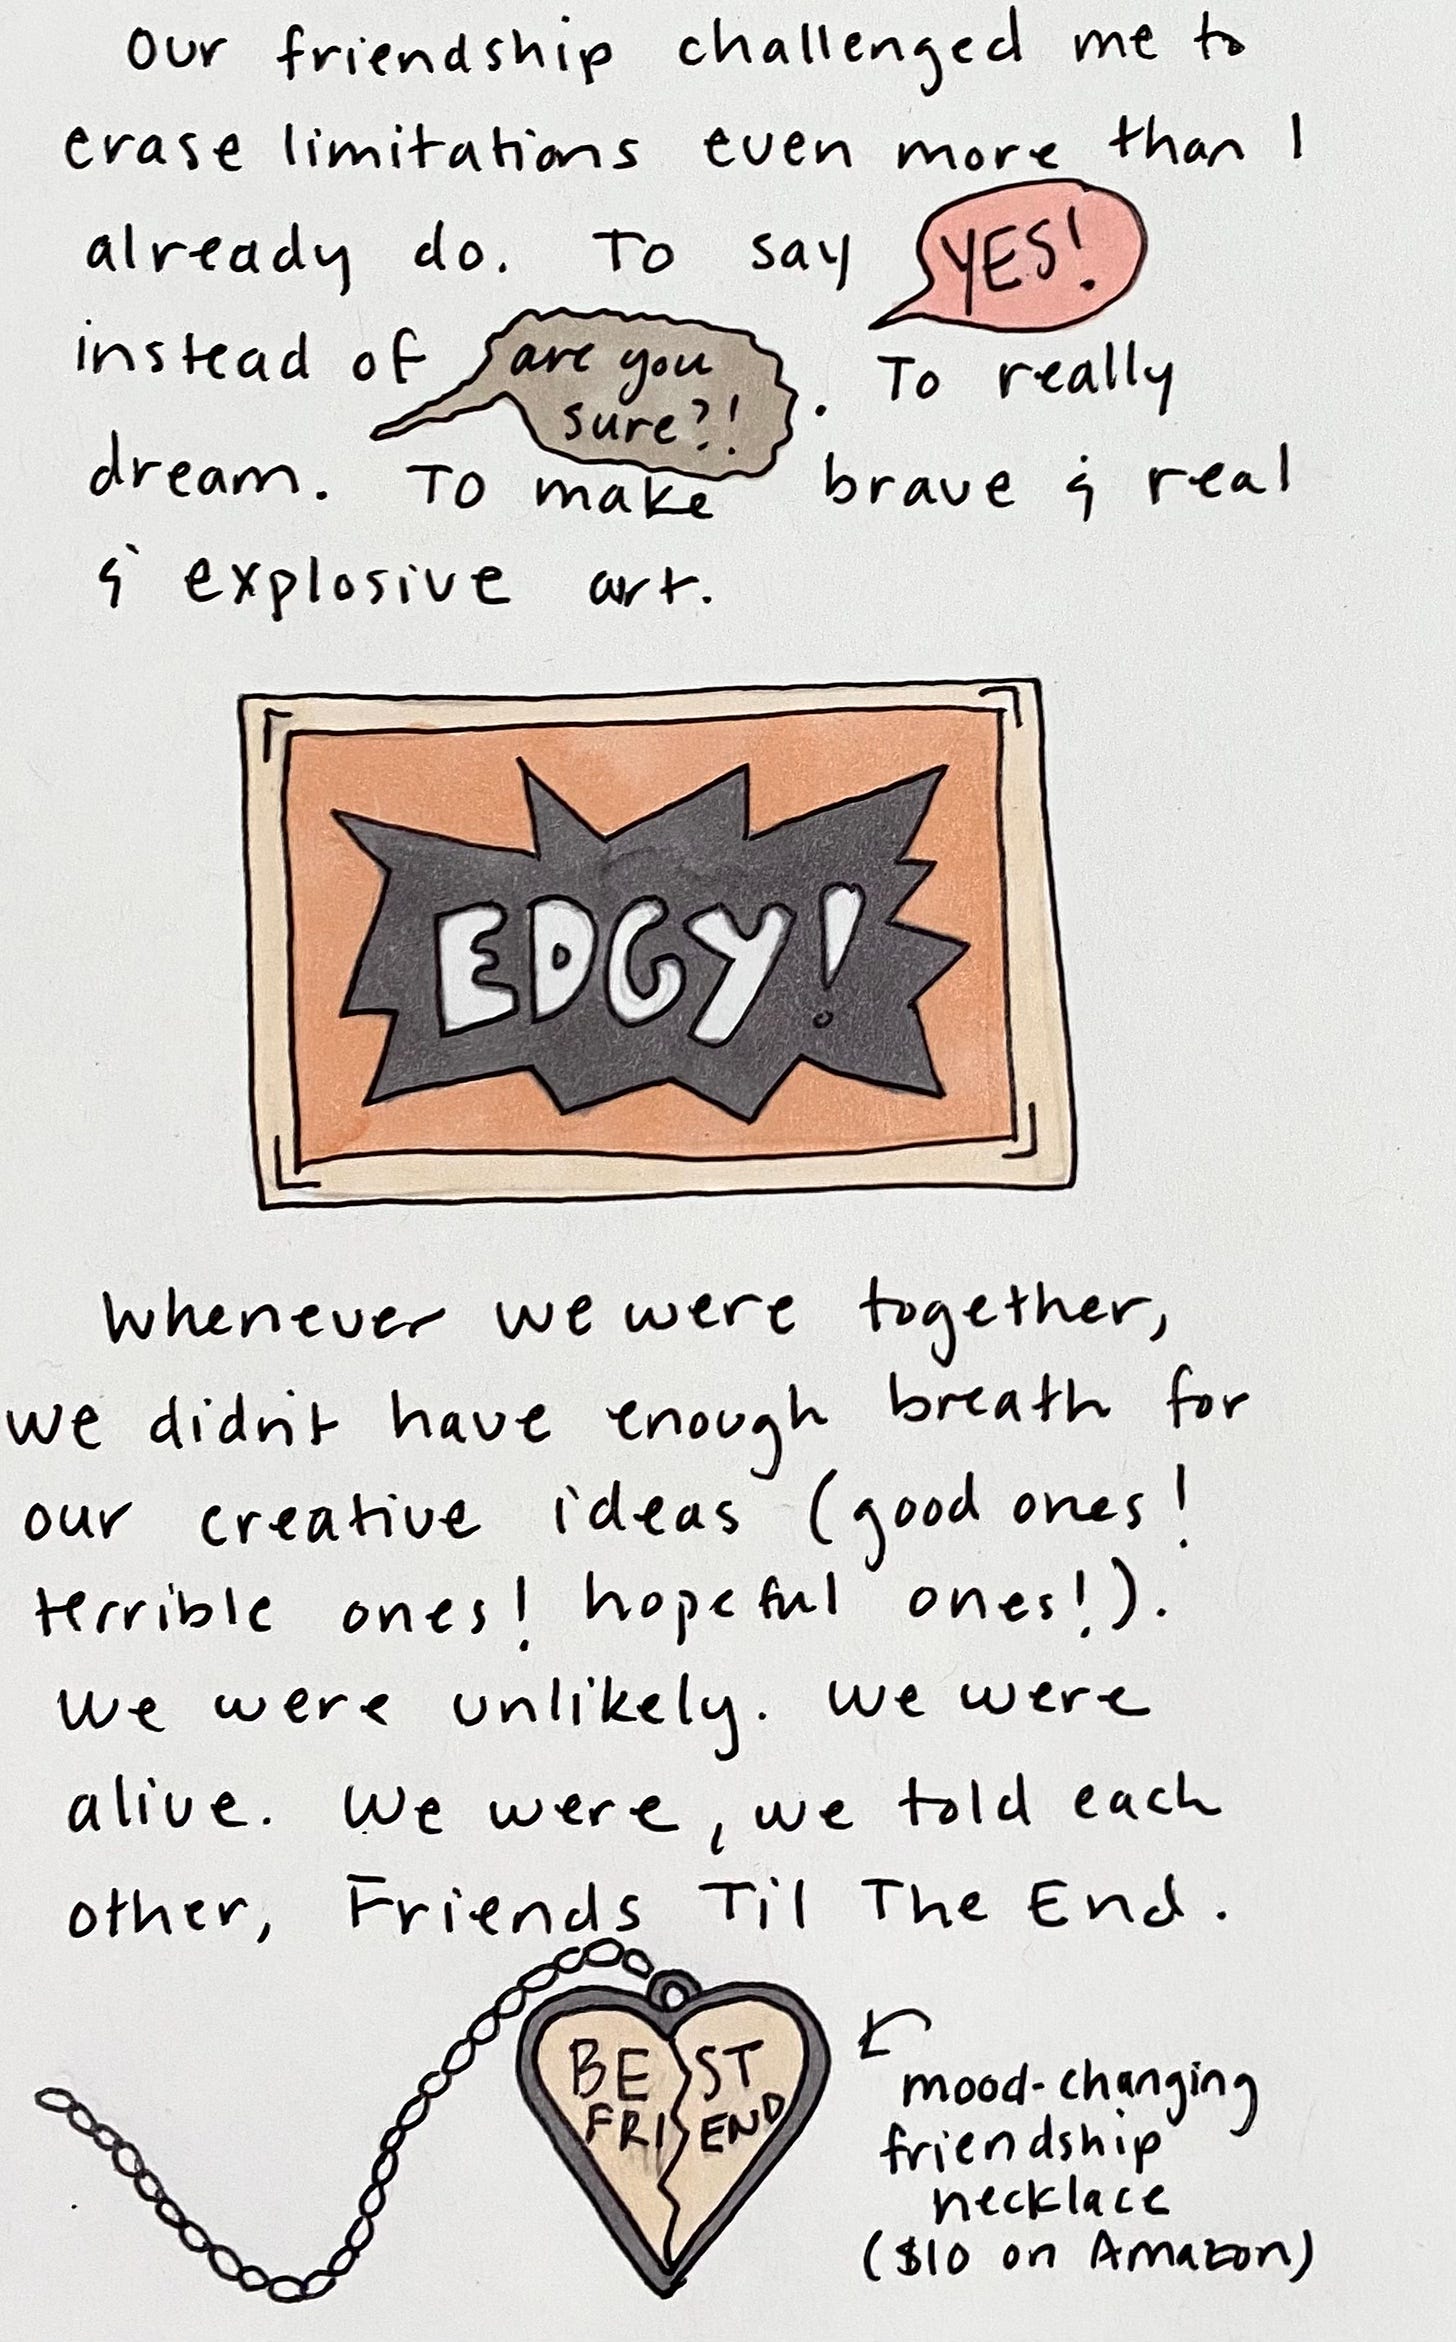 Our friendship challenged me to
erase limitations even more than I
already do. To say YES!
instead of are you
sure?! . To really
dream. To make brave & real
& explosive art.
EDGY!
Whenever we were together,
we didn't have enough breath for
our creative ideas (good ones!
terrible ones! hopeful ones!).
We were unlikely. We were
alive. We were, we told each
other, Friends Til The End.
BEST
FRIEND
mood-changing
friendship
necklace
($10 on Amazon)